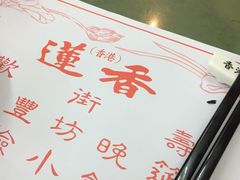 蓮香
(香港)
街坊
晚
壽
歡
豐
小
儉
香